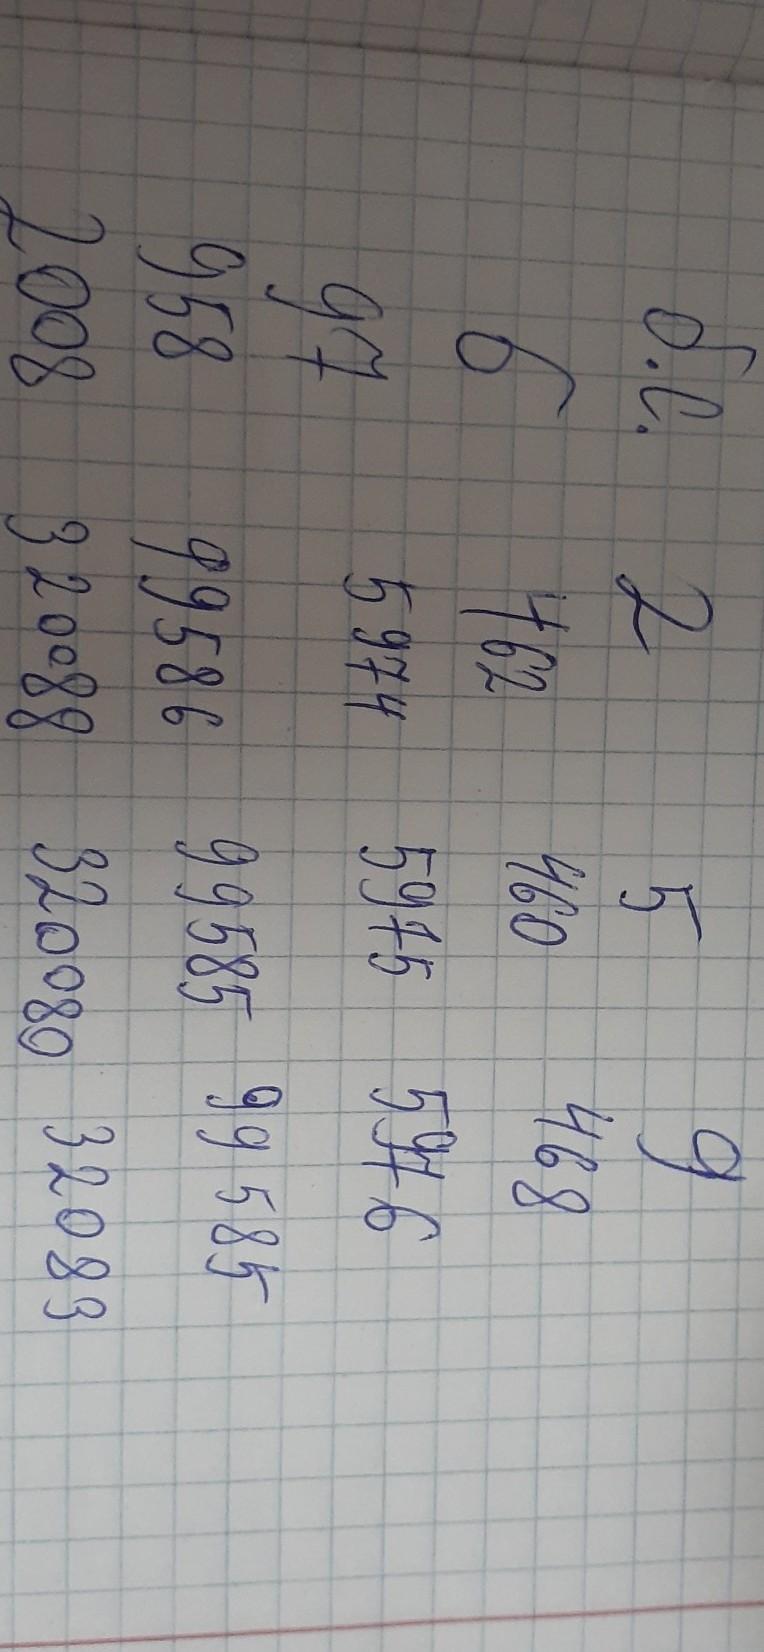 2 5 9
6 462 460 468
97 5974 5975 5976
958 99586 99585 99585
2008 320088 320080 32083